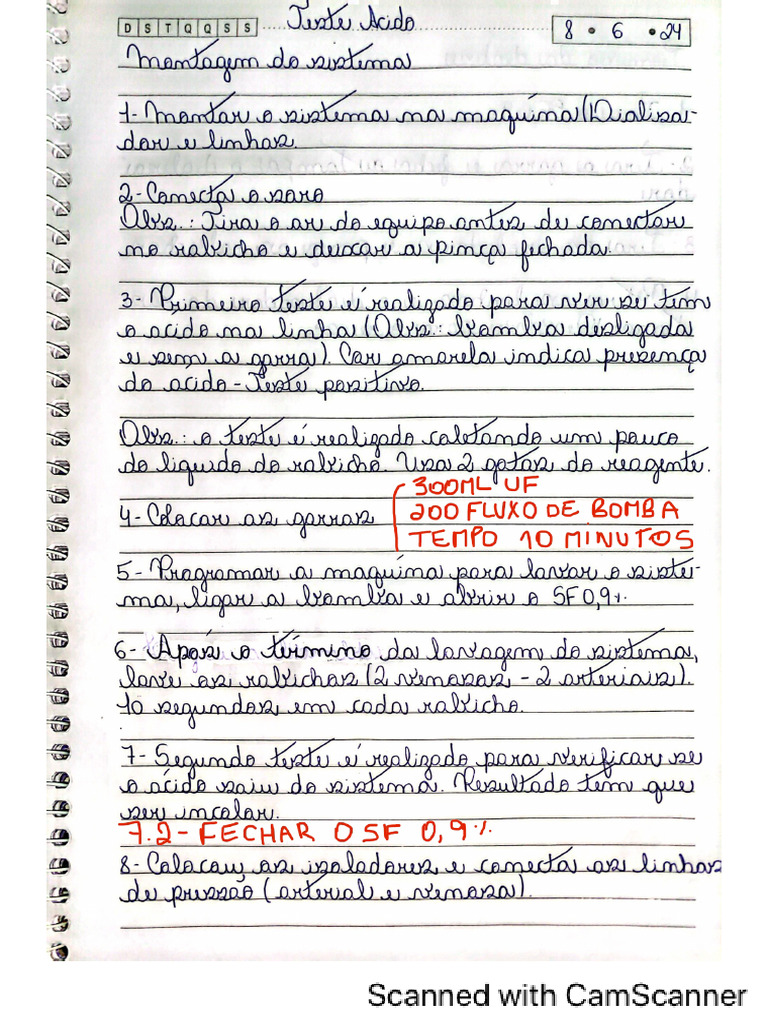 D S T Q Q S S Teste Acido 8 • 6 • 24
Montagem do sistema
1- Montar o sistema na maquina (Dializa-
dor e linhas.
2- Conecta o soro
Obs.: Tira o ar do equipo antes de conectar
no rabicho e deixar a pinça fechada.
3- Primeiro teste é realizado para ver se tem
o acido na linha (Obs: bomba desligada
e sem a garra). Cor amarela indica presença
do acido - Teste positivo.
Obs.: o teste é realizado coletando um pouco
do liquido do rabicho. Usa 2 gotas do reagente.
300ML UF
4- Colocar as garras 200 FLUXO DE BOMBA
TEMPO 10 MINUTOS
5- Programar a maquina para lavar o siste-
ma, ligar a bomba e abrir o SF 0,9%.
6- Após o término da lavagem do sistema,
lave os rabichos (2 venosos - 2 arteriais).
10 segundos em cada rabicho.
7- Segundo teste é realizado para verificar se
o ácido saiu do sistema. Resultado tem que
ser incolor.
7.2- FECHAR O SF 0,9%.
8- Colocar os isoladores e conecta as linhas
de pressão (arterial e venosa).
Scanned with CamScanner